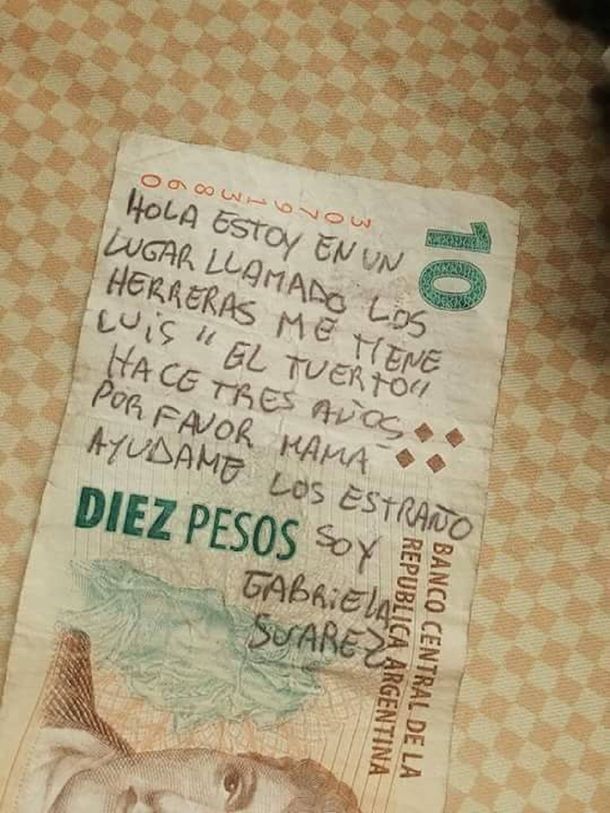 30791386 O
10
HOLA ESTOY EN UN
LUGAR LLAMADO LOS
HERRERAS ME TIENE
LUIS "EL TUERTO"
HACE TRES AÑOS
POR FAVOR MAMA
AYUDAME LOS ESTRAÑO
DIEZ PESOS
SOY
GABRIELA
SUAREZ
BANCO CENTRAL DE LA
REPUBLICA ARGENTINA